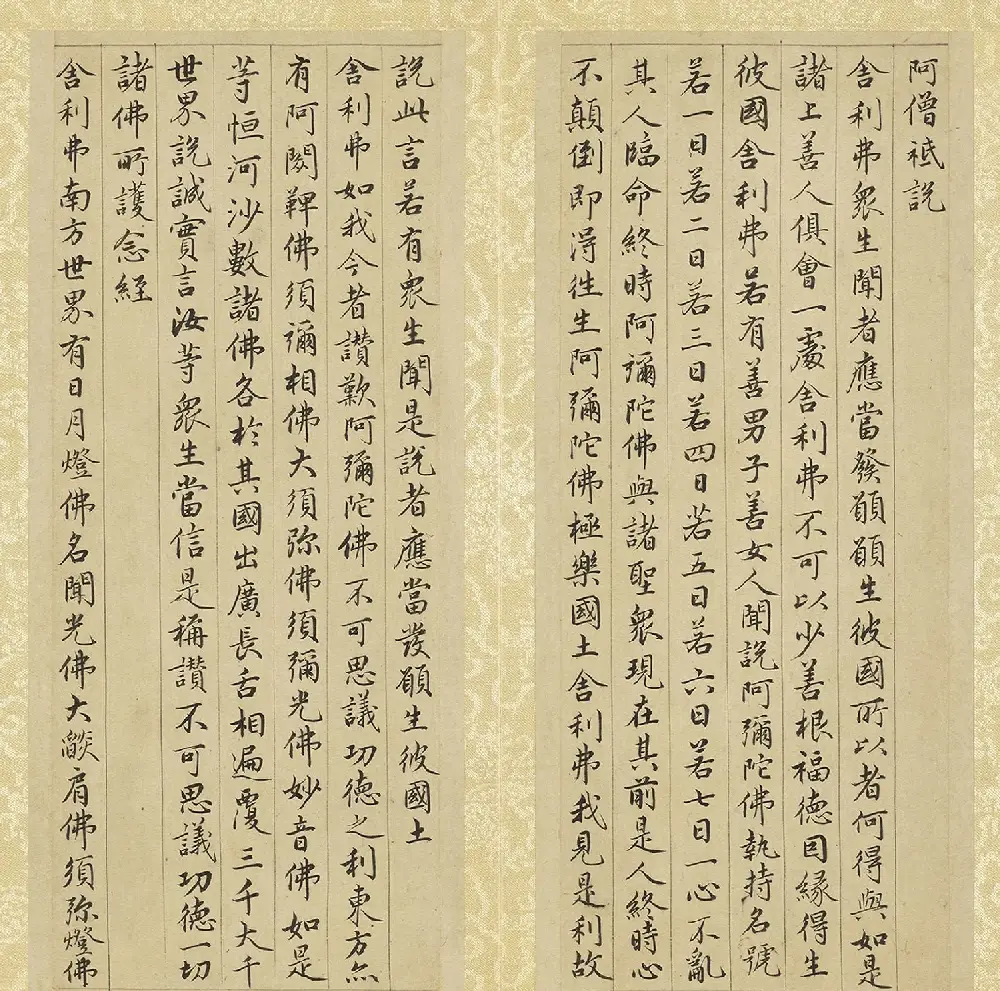 阿僧祇說
舍利弗衆生聞者應當發願願生彼國所以者何得與如是
諸上善人俱會一處舍利弗不可以少善根福德因緣得生
彼國舍利弗若有善男子善女人聞說阿彌陀佛執持名號
若一日若二日若三日若四日若五日若六日若七日一心不亂
其人臨命終時阿彌陀佛與諸聖衆現在其前是人終時心
不顛倒即得往生阿彌陀佛極樂國土舍利弗我見是利故
說此言若有衆生聞是說者應當發願生彼國土
舍利弗如我今者讚歎阿彌陀佛不可思議功德之利東方亦
有阿閦鞞佛須彌相佛大須弥佛須彌光佛妙音佛如是
等恒河沙數諸佛各於其國出廣長舌相遍覆三千大千
世界說誠實言汝等衆生當信是稱讚不可思議功德一切
諸佛所護念經
舍利弗南方世界有日月燈佛名聞光佛大燄肩佛須弥燈佛